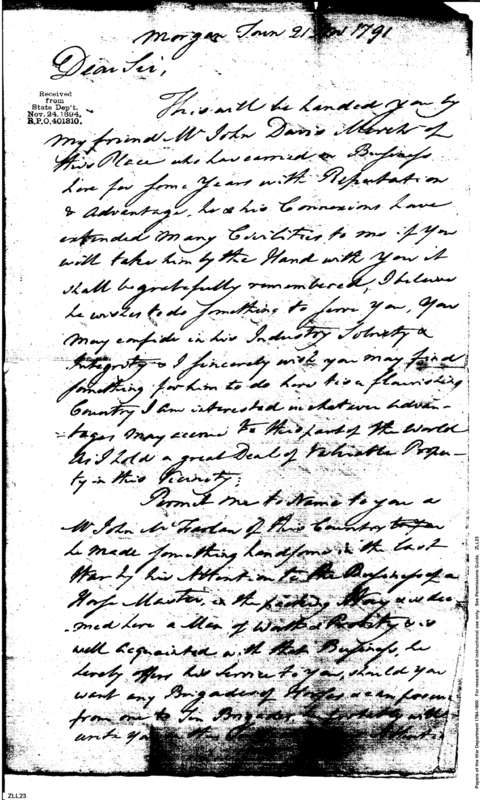 Morgan Town 21 Nov 1791
Dear Sir,
Received
from
State Dep't.
Nov. 24, 1894.
R.P.O. 401310.
This will be handed you by
my friend Mr John Davis Merch't of
this Place who has carried on Business
here for some Years with Reputation
& Advantage, he & his Connexions have
extended many Civilities to me if you
will take him by the Hand with you it
shall be gratefully remembered, I believe
he wishes to do something to serve you, You
may confide in his Industry Sobriety &
Integrity & I sincerely wish you may find
something for him to do here tis a flourishing
Country I am interested in whatever Advan-
-tages may accrue to this part of the World
as I hold a great Deal of Valuable Proper-
ty in this Vicinity;
Permit me to Name to you a
Mr John of this Country
he made something handsome in the last
War by his Attention to the Business of a
Horse Master, in the packing Way & is dee-
-med here a Man of Worth & Probity & is
well acquainted with that Business, he
hereby offers his Service to You, should you
want any Brigades of Horses he can procure
from one to Ten Brigades, he probably will
write you
ZLL23
Papers of the War Department 1784-1800. For research and instructional use only. See Permissions Guide. ZLL23